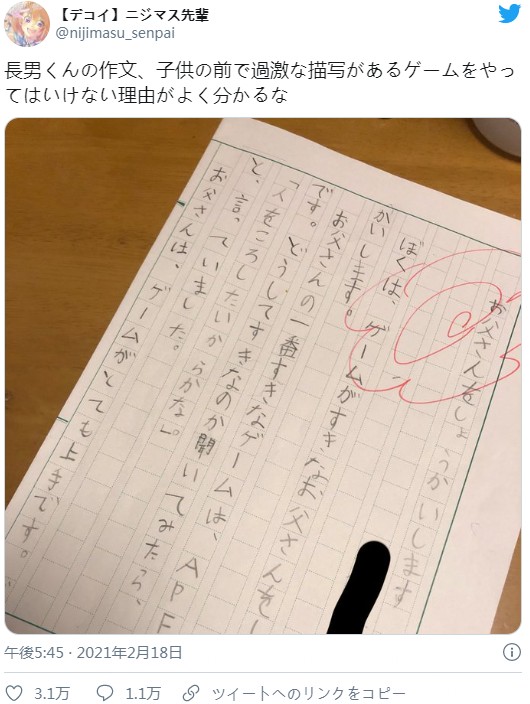 【デコイ】ニジマス先輩
@nijimasu_senpai
長男くんの作文、子供の前で過激な描写があるゲームをやっ
てはいけない理由がよく分かるな
お父さんをしょうかいします
ぼくは、ゲームがすきなお父さんをし
かいします。
お父さんの一番すきなゲームは、APE
です。どうしてすきなのか聞いてみたら、
「人をころしたいからかな」。
と、言っていました。
お父さんは、ゲームがとても上手です。
午後5:45 · 2021年2月18日
3.1万 1.1万 ツイートへのリンクをコピー